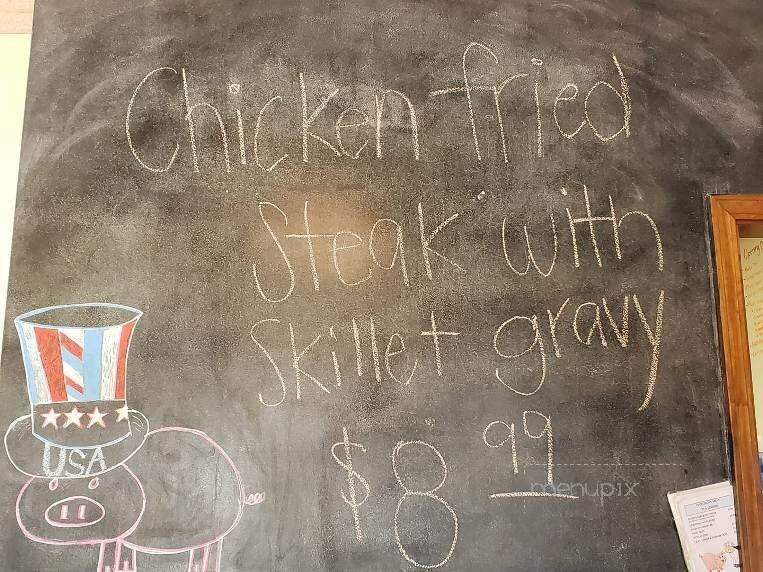 Chicken fried
Steak with
Skillet gravy
$8 99
USA
menupix